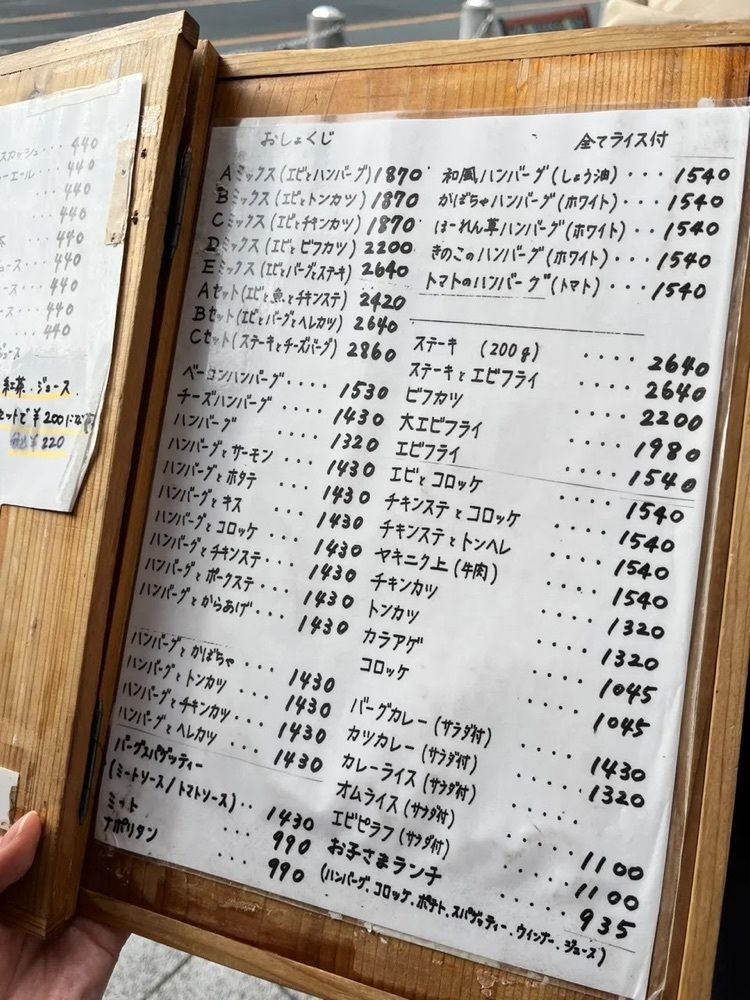 スカッシュ・・・440
ーエール ・・・440
・・・440
・・・440
・・・440
ュース・・・440
ース・・・440
ース・・・440
・・・440
ジュース
紅茶、ジュース
セットで¥200に
¥220
おしょくじ
Aミックス(エビとハンバーグ)1870
Bミックス(エビとトンカツ)1870
Cミックス(エビとチキンカツ)1870
Dミックス(エビとビフカツ)2200
Eミックス(エビとバーグとステーキ)2640
Aセット(エビと魚とチキンステ)2420
Bセット(エビとバーグとヘレカツ)2640
Cセット(ステーキとチーズバーグ)2860
ベーコンハンバーグ・・・・1530
チーズハンバーグ・・・・1430
ハンバーグ・・・・1320
ハンバーグとサーモン・・・・1430
ハンバーグとホタテ・・・・1430
ハンバーグとキス・・・・1430
ハンバーグとコロッケ・・・・1430
ハンバーグとチキンステ・・・・1430
ハンバーグとポークステ・・・・1430
ハンバーグとからあげ・・・1430
ハンバーグとかぼちゃ・・・1430
ハンバーグとトンカツ・・・1430
ハンバーグとチキンカツ・・・1430
ハンバーグとヘレカツ・・・1430
バーグスパゲッティー
(ミートソース/トマトソース)・・1430
ミート・・・990
ナポリタン・・・990
全てライス付
和風ハンバーグ(しょう油)・・・1540
かぼちゃハンバーグ(ホワイト)・・・1540
ほーれん草ハンバーグ(ホワイト)・・・1540
きのこのハンバーグ(ホワイト)・・・1540
トマトのハンバーグ(トマト)・・・1540
ステーキ (200g)・・・・2640
ステーキとエビフライ・・・・2640
ビフカツ・・・・2200
大エビフライ・・・・1980
エビフライ・・・・1540
エビとコロッケ・・・・1540
チキンステとコロッケ・・・・1540
チキンステとトンヘレ・・・・1540
ヤキニク上(牛肉)・・・・1540
チキンカツ・・・・1320
トンカツ・・・・1320
カラアゲ・・・・1045
コロッケ・・・・1045
バーグカレー(サラダ付)・・・・1430
カツカレー(サラダ付)・・・・1320
カレーライス(サラダ付)・・・・・
オムライス(サラダ付)・・・・・1100
エビピラフ(サラダ付)・・・・・1100
お子さまランチ・・・・935
(ハンバーグ、コロッケ、ポテト、スパゲッティー、ウインナー、ジュース)